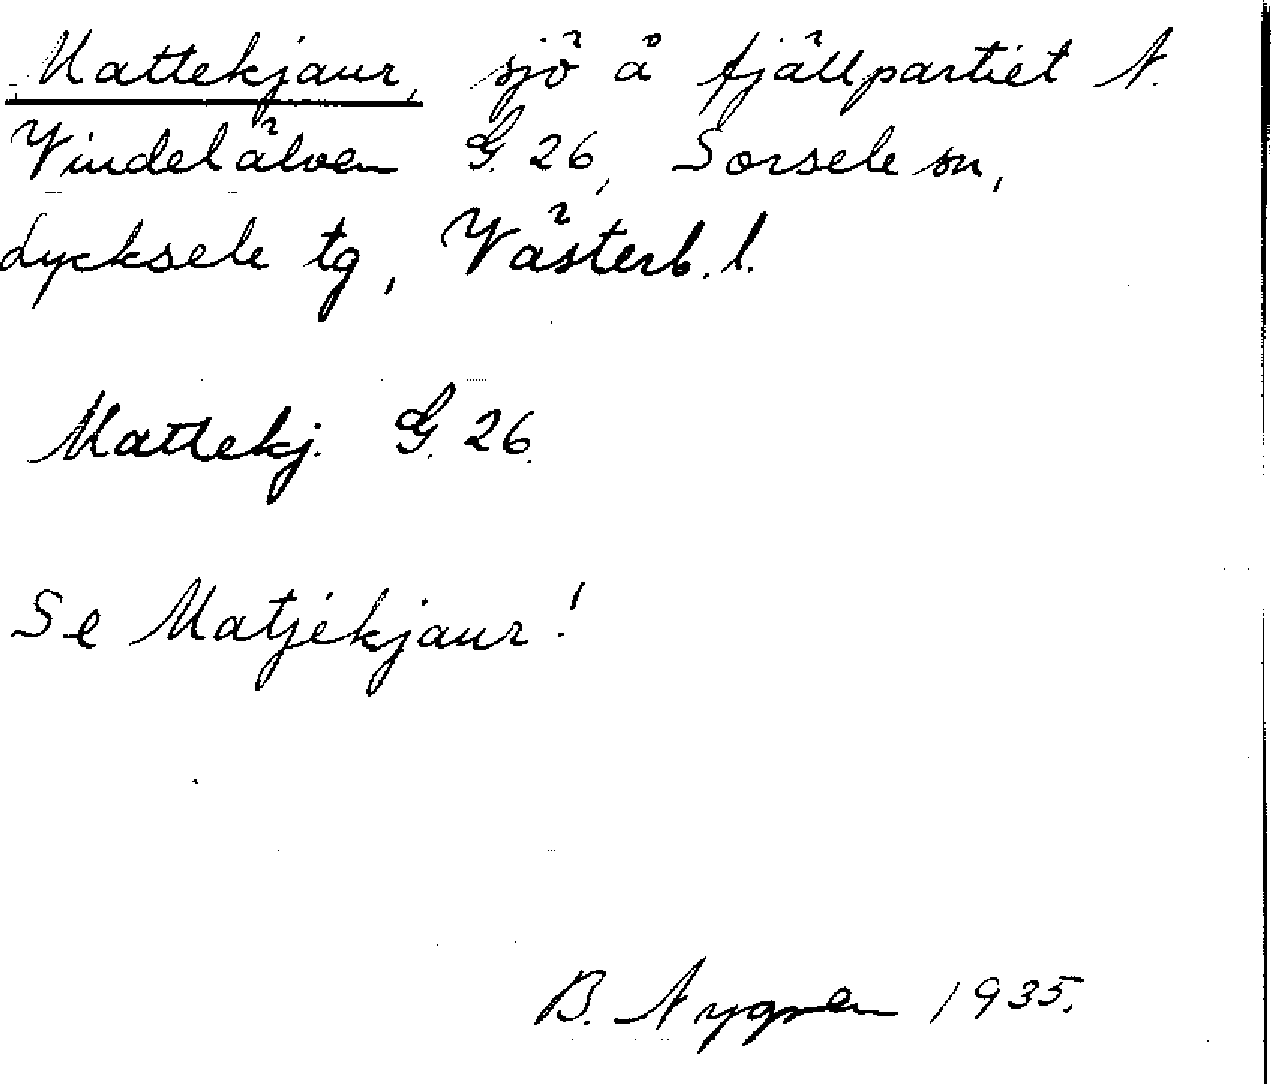 Mattekjaur, sjö å fjällpartiet N.
Vindelälven G. 26, Sorsele sn,
Lycksele tg, Västerb. l.
Mattekj. G. 26.
Se Matjekjaur!
B. Nygren 1935.